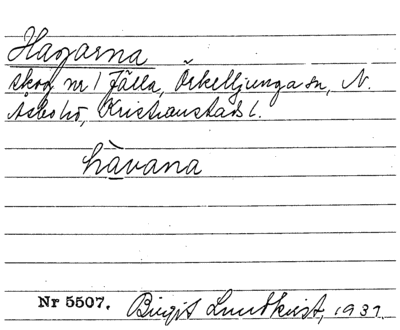 Hagarna
skog nr 1 Fälla, Örkelljunga sn, N.
Åsbo hd, Kristianstads l.
hàvana
Nr 5507. Birgit Lundkvist, 1937.